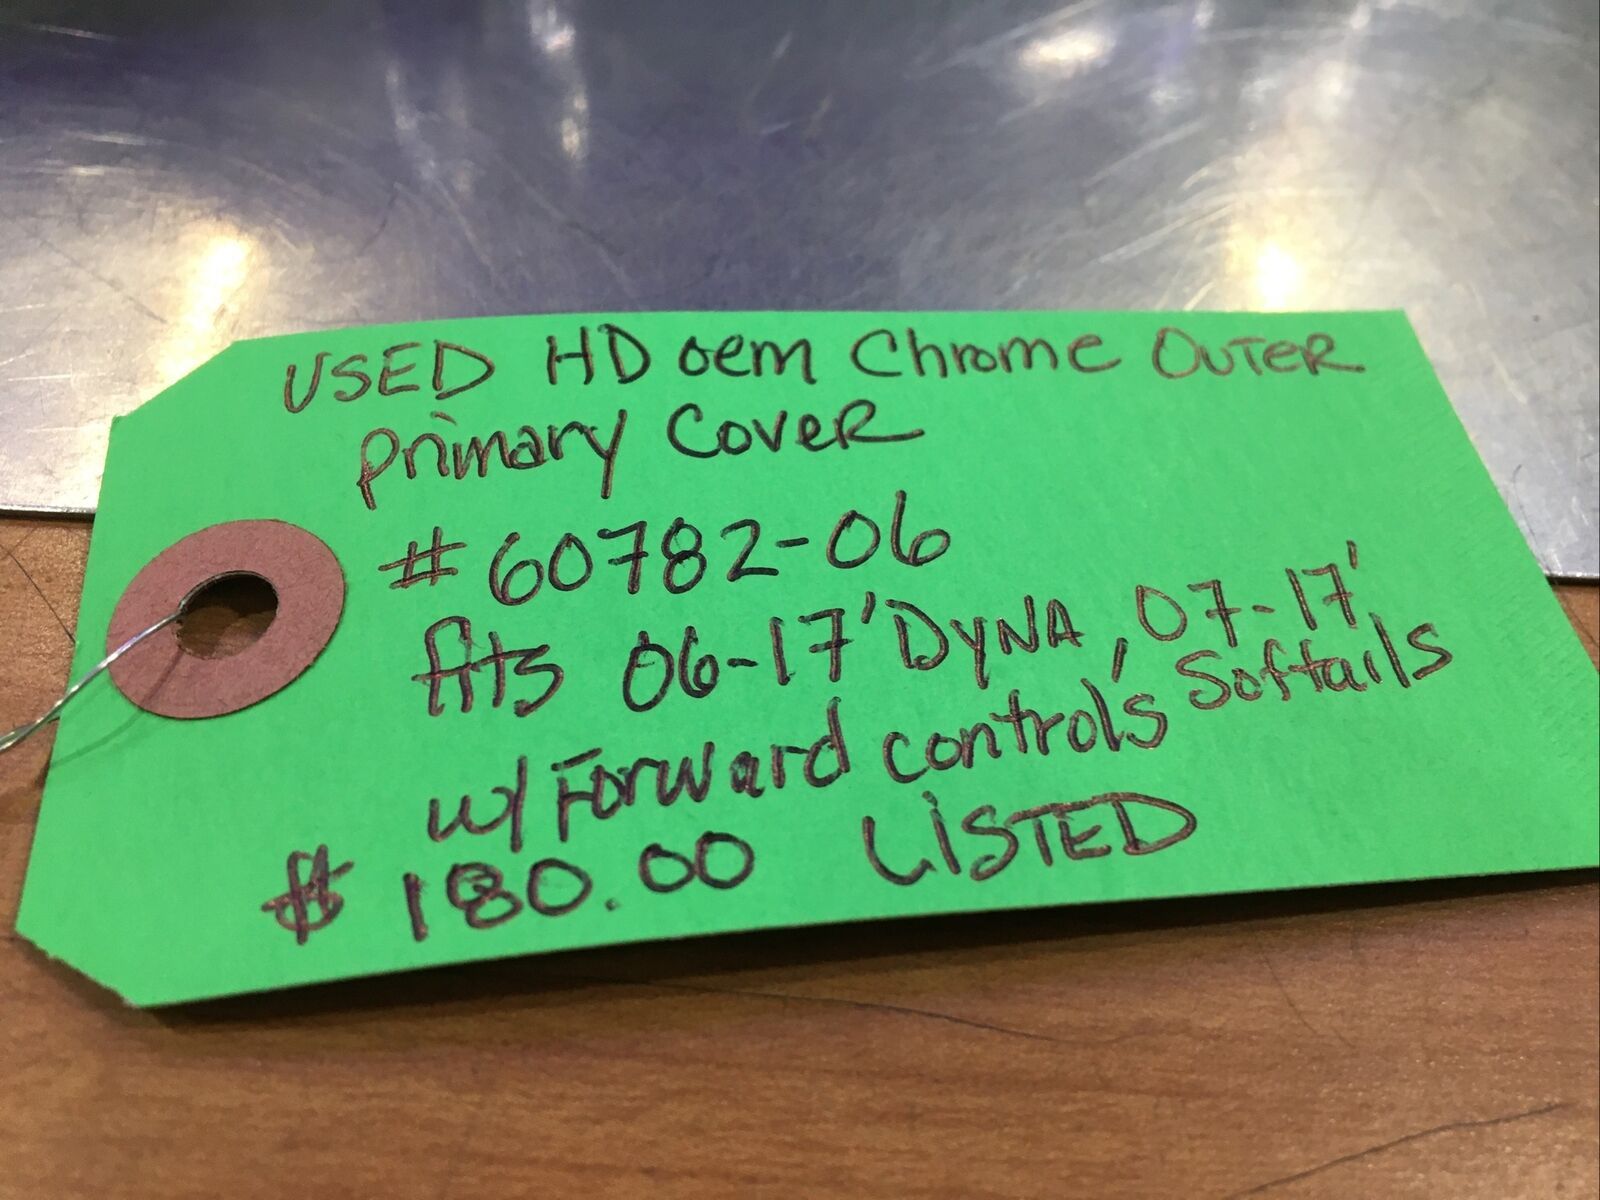 USED HD oem Chrome OUTER
primary COVER
#60782-06
fits 06-17' DYNA, 07-17'
w/ Forward control's Softails
$180.00 LISTED